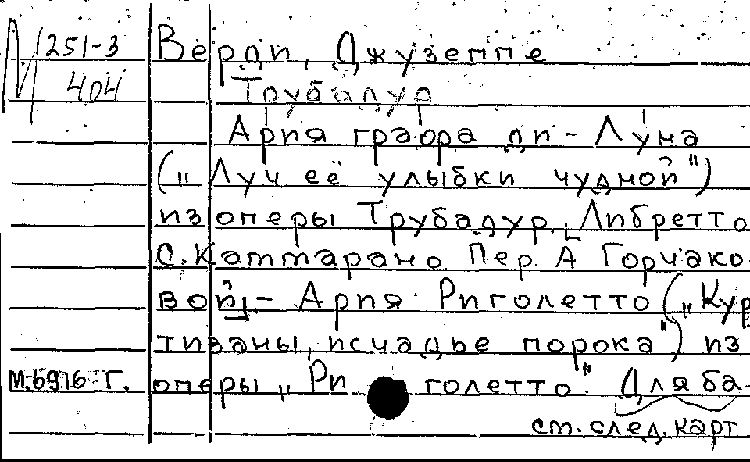 М 251-3 Верди, Джузеппе
404 Трубадур
Ария графа ди-Луна
(„Луч её улыбки чудной")
из оперы Трубадур. Либретто
С. Каммарано. Пер. А Горчако-
вой]- Ария Риголетто („Кур
тизаны, исчадье порока") из
М.6916 г. оперы „Риголетто". Для ба-
см. след. карт